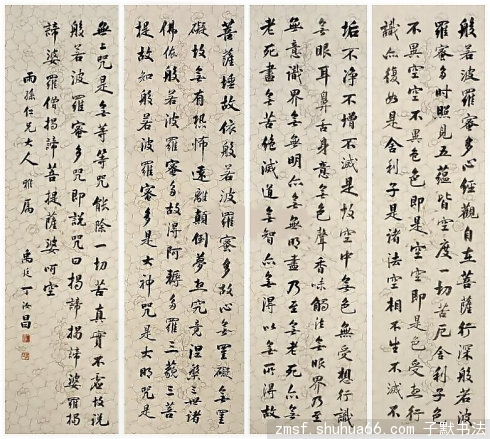 般若波羅蜜多心經觀自在菩薩行深般若波
羅蜜多時照見五蘊皆空度一切苦厄舍利子色
不異空空不異色色即是空空即是色受想行
識亦復如是舍利子是諸法空相不生不滅不
垢不净不增不減是故空中無色無受想行識
無眼耳鼻舌身意無色聲香味觸法無眼界乃至
無意識界無無明亦無無明盡乃至無老死亦無
老死盡無苦集滅道無智亦無得以無所得故
菩薩埵故依般若波羅蜜多故心無罣礙無罣
礙故無有恐怖遠離顛倒夢想究竟涅槃三世諸
佛依般若波羅蜜多故得阿耨多羅三藐三菩
提故知般若波羅蜜多是大神咒是大明咒是
無上咒是無等等咒能除一切苦真實不虛故說
般若波羅蜜多咒即說咒曰揭諦揭諦婆羅揭
諦婆羅僧揭諦菩提薩婆呵空
雨孫仁兄大人雅屬
禹廷丁汝昌
zmsf.shuhua66.com 子默书法